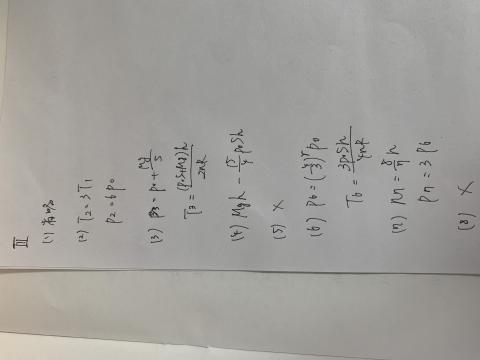 III
(1)
(2) T₂=3T₁
P₂=6P₀
(3) P₃ = P₀ + Mg/S
T₃ = (P₀S+Mg)h/2nR
(4) Mgh - 15/4 P₀Sh
(5) ×
(6) P₆ = P₀
T₆ = 3P₀Sh/4nR
(7)
P₇ = 3P₆
(8) ×